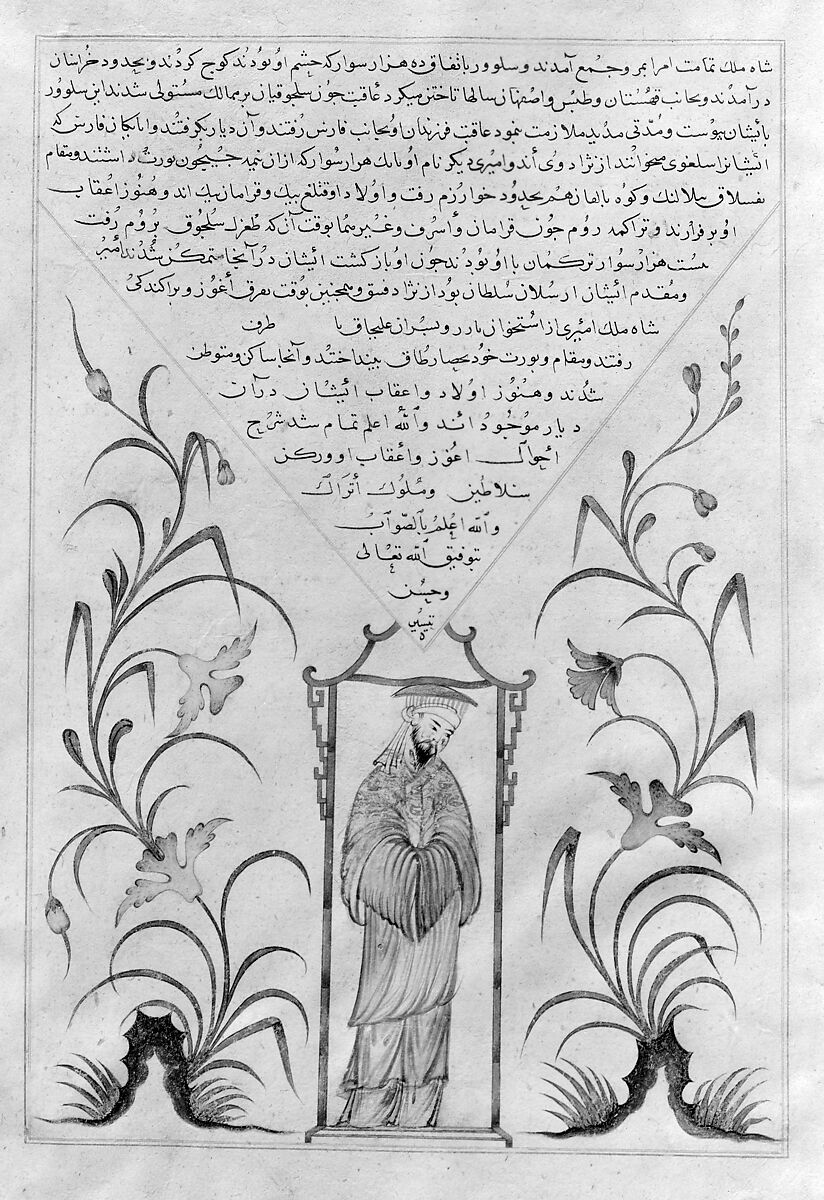 شاه ملك تمامت امرا بمرو جمع آمدند و سلوور باتفاق ده هزار سوار كه حشم او بودند كوج كردند و بحدود خراسان
درآمدند و بجانب قهستان و طبس و اصفهان سالها تاختن ميكرد عاقبت جون سلجوقيان بر ممالك مستولى شدند ابن سلوور
با ايشان پيوست و مدتى مديد ملازمت نمود عاقبت فرزندان او بجانب فارس رفتند و آن ديار بكرفتند و اتابكان فارس كه
ايشانرا سلغرى ميخوانند از نژاد وى أند و اميرى ديكر نام او با يك هزار سوار كه ازان نيمه جيحون يورت داشتند و مقام
بقسلاق و كوه هم بحدود خوارزم رفت و اولاد او قتلغ بيك و قرامان بيك اند و هنوز اعقاب
او بر قرارند و تراكمه روم جون قرامان و أسرف و غيرهما بوقت آن كه طغرل سلجوق بروم رفت
بيست هزار سوار تركمان با او بودند جون او بازكشت ائيشان درآنجا متمكن شدند أمير
و مقدم ائيشان ارسلان سلطان بود از نژاد و همجنين بوقت تفرق أغوز و براكندكى
شاه ملك اميرى از استخوان با دو بسران با طرف
رفتند و مقام و يورت خود بحصار طاق بينداختند و آنجا ساكن و متوطن
شدند و هنوز اولاد و اعقاب ائيشان درآن
ديار موجود اند والله اعلم تمام شد شرح
احوال اغوز و أعقاب او و ركز
سلاطين و ملوك أتراك
والله اعلم بالصواب
بتوفيق الله تعالى
وحسن
تيسيره